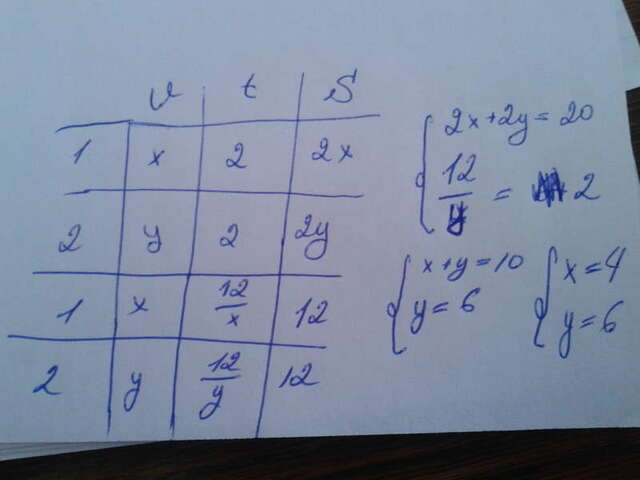 v t S
1 x 2 2x
2 y 2 2y
1 x 12/x 12
2 y 12/y 12
{ 2x+2y=20
12/y = 2
{ x+y=10
y=6
{ x=4
y=6